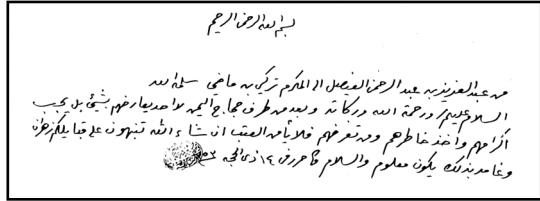 بسم الله الرحمن الرحيم
من عبد العزيز بن عبد الرحمن الفيصل الى المكرم تركي بن ماضي سلمه الله
السلام عليكم ورحمة الله وبركاته وبعد من طرف حجاج اليمن لا احد يعارضهم بشيء بل يجب
اكرامهم واخذ خاطرهم ومن تعرضهم فلا يأمن العقب ان شاء الله تنبهون على قبايلكم زهران
وغامد بذلك يكون معلوم والسلام حرر في ١٤ ذي الحجه